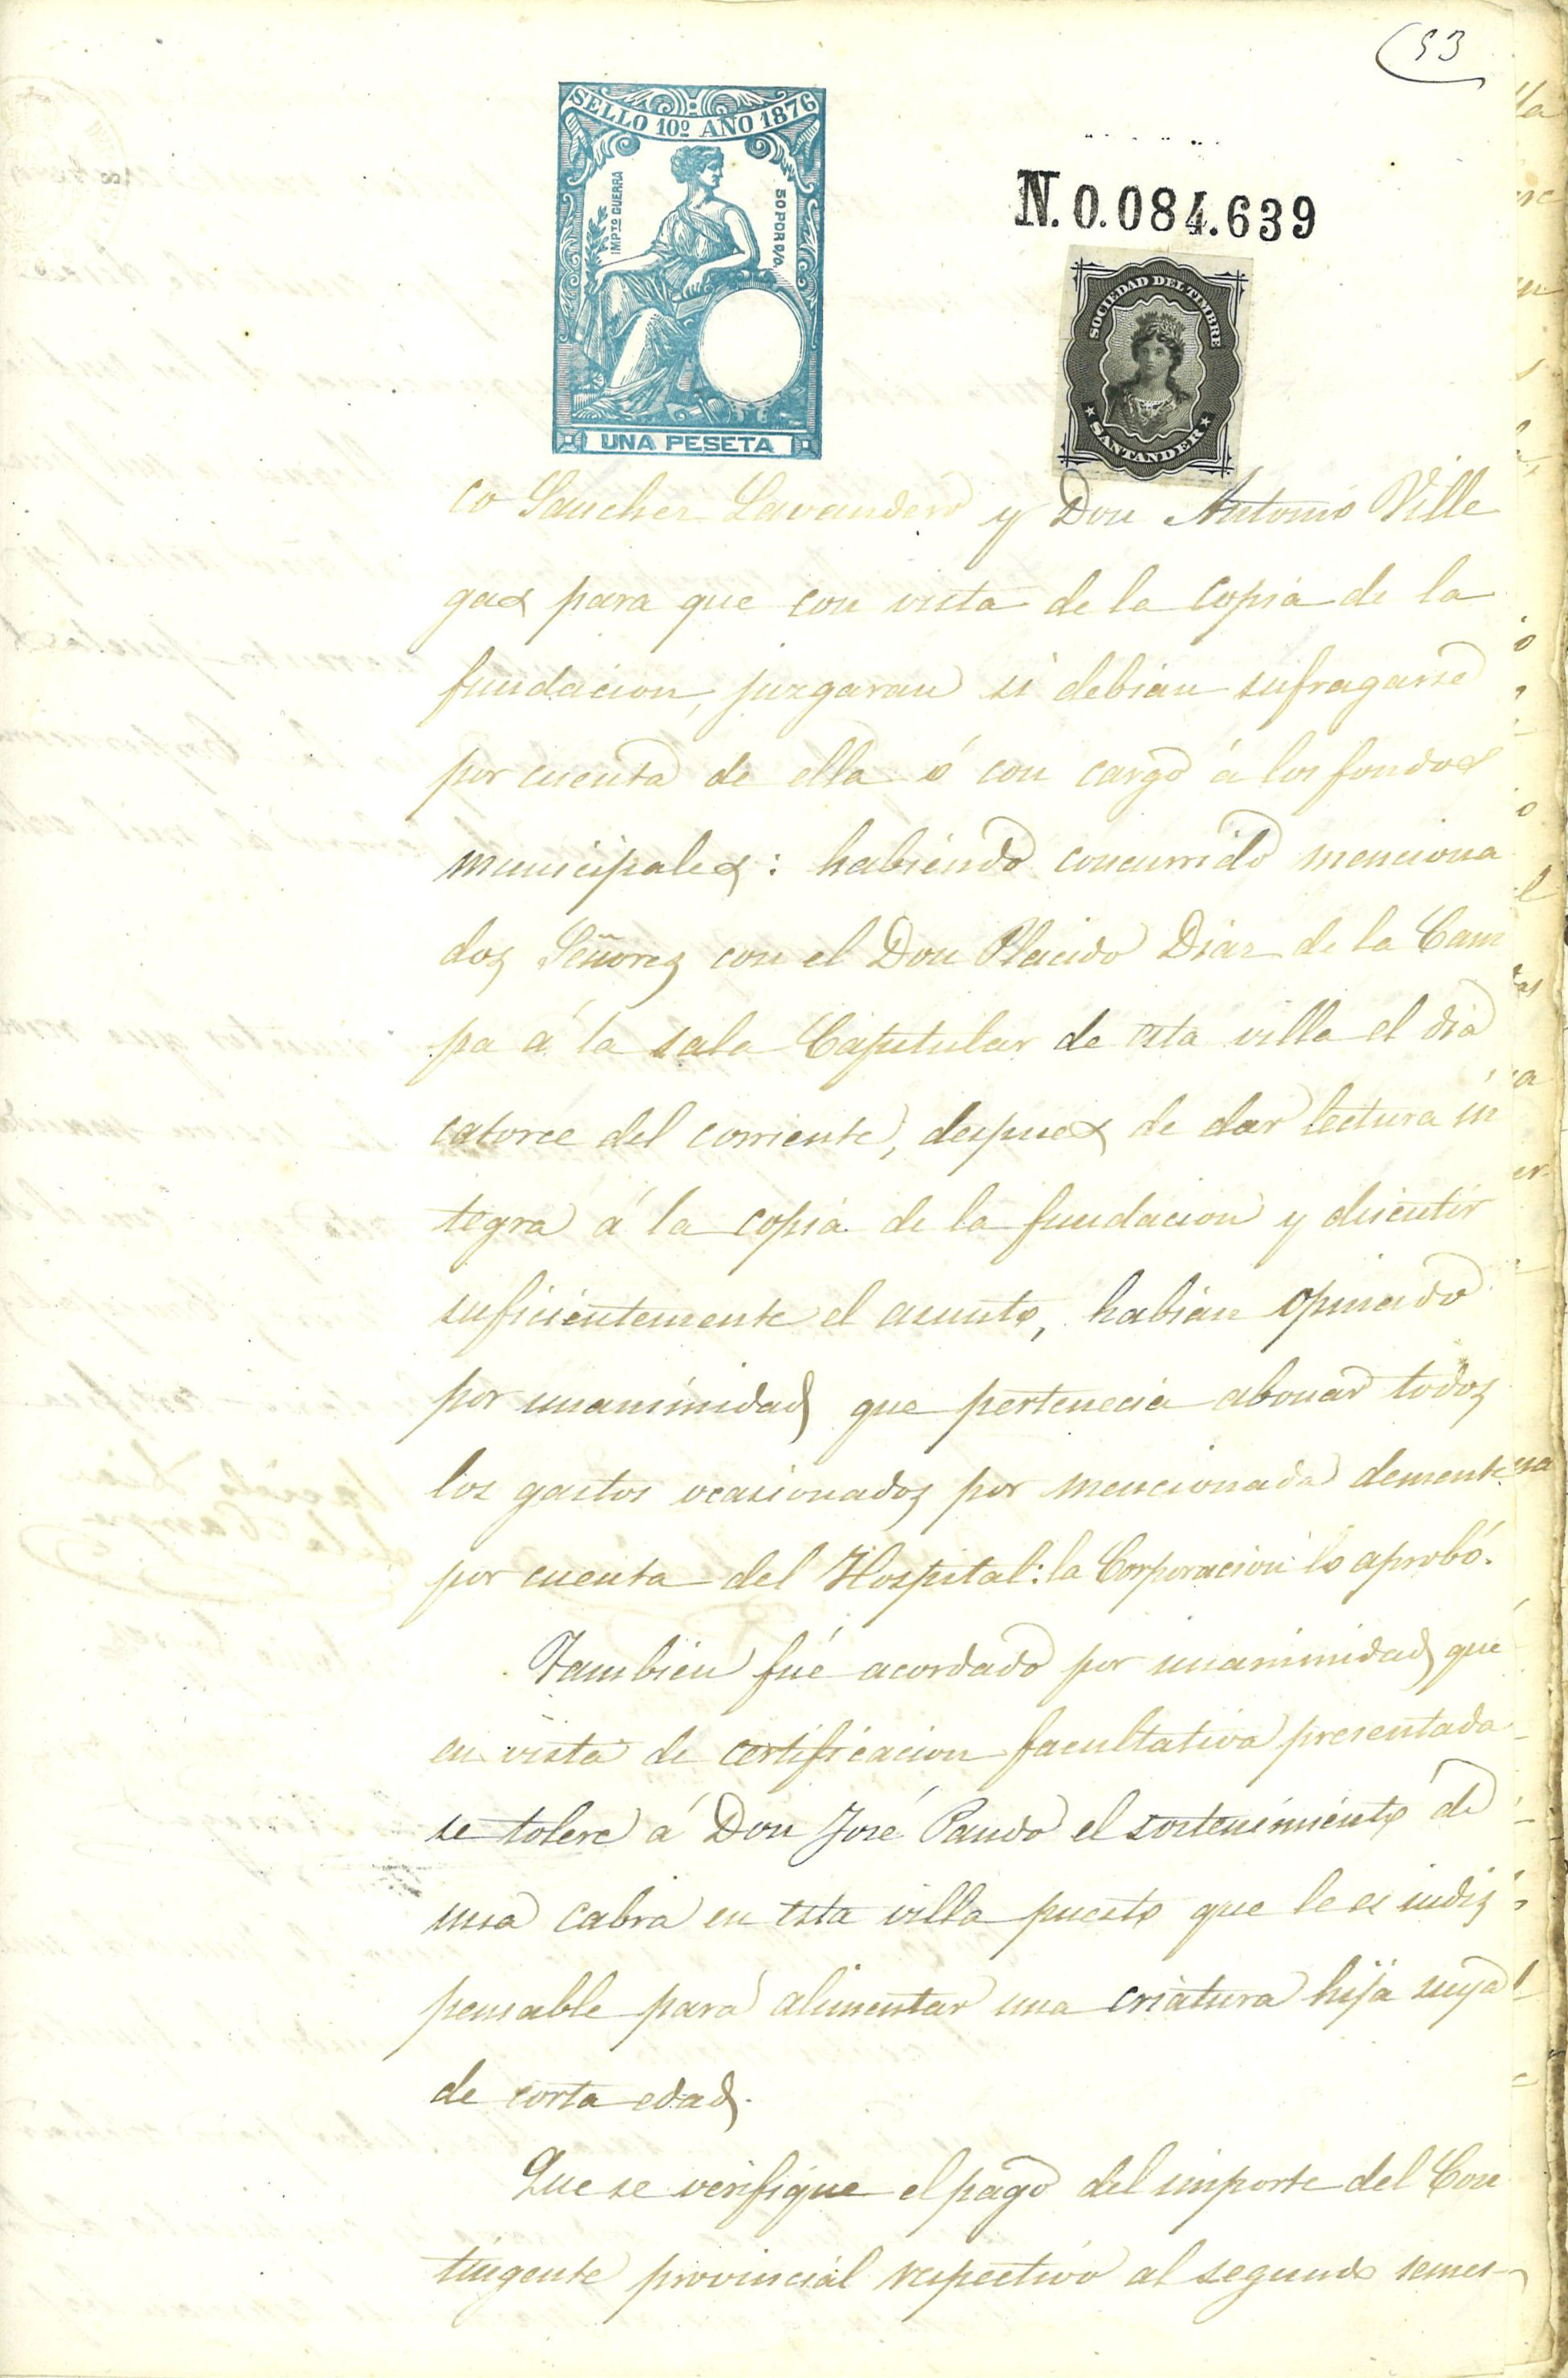 (53
SELLO 10º AÑO 1876
IMPTO GUERRA
50 POR O/O.
UNA PESETA
N. 0.084.639
SOCIEDAD DEL TIMBRE
SANTANDER
co Sanchez Lavandero y Don Antonio Ville
gas para que con vista de la copia de la
fundacion, juzgaran si debian sufragarse
por cuenta de ella ó con cargo á los fondos
municipales: habiendo concurrido menciona
dos Señores con el Don Placido Diaz de la Cam
pa á la sala Capitular de esta villa el dia
catorce del corriente, despues de dar lectura in
tegra á la copia de la fundacion y discutir
suficientemente el asunto, habian opinado
por unanimidad que pertenecia abonar todos
los gastos ocasionados por mencionada demente
por cuenta del Hospital: la Corporacion lo aprobó.
Tambien fué acordado por unanimidad que
en vista de certificacion facultativa presentada
se tolere á Don José Pando el sostenimiento de
una cabra en esta villa puesto que le es indis
pensable para alimentar una criatura hija suya
de corta edad.
Que se verifique el pago del importe del Con
tingente provincial respectivo al segundo semes-